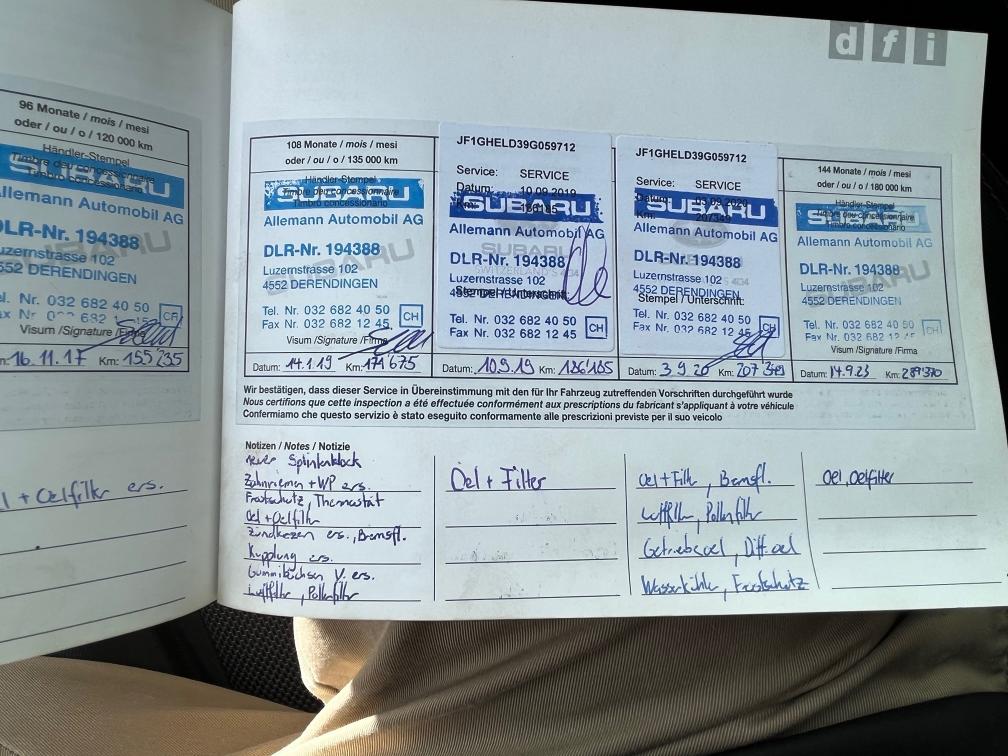 dfi
96 Monate / mois / mesi
oder / ou / o / 120 000 km
Händler-Stempel
Timbre du concessionnaire
Timbro concessionario
SUBARU
Allemann Automobil AG
DLR-Nr. 194388
Luzernstrasse 102
4552 DERENDINGEN
Tel. Nr. 032 682 40 50
CH
Visum /Signature /Firma
16.11.17 Km: 155 235
l + Oelfilter ers.
108 Monate / mois / mesi
oder / ou / o / 135 000 km
Händler-Stempel
Timbre du concessionnaire
Timbro concessionario
SUBARU
Allemann Automobil AG
DLR-Nr. 194388
Luzernstrasse 102
4552 DERENDINGEN
Tel. Nr. 032 682 40 50
Fax Nr. 032 682 12 45
CH
Visum /Signature /Firma
Datum: 14.1.19 Km: 171 675
JF1GHELD39G059712
Service: SERVICE
Datum: 10.09.2019
Km:
SUBARU
Allemann Automobil AG
DLR-Nr. 194388
Luzernstrasse 102
4552 DERENDINGEN
Stempel / Unterschrift:
Tel. Nr. 032 682 40 50
Fax Nr. 032 682 12 45
CH
Datum: 10.9.19 Km: 186185
JF1GHELD39G059712
Service: SERVICE
Datum: 03.09.2020
Km: 207349
SUBARU
Allemann Automobil AG
DLR-Nr. 194388
Luzernstrasse 102
4552 DERENDINGEN
Stempel / Unterschrift:
Tel. Nr. 032 682 40 50
Fax Nr. 032 682 12 45
CH
Datum: 3.9.20 Km: 207 349
144 Monate / mois / mesi
oder / ou / o / 180 000 km
Händler-Stempel
Timbre du concessionnaire
Timbro concessionario
SUBARU
Allemann Automobil AG
DLR-Nr. 194388
Luzernstrasse 102
4552 DERENDINGEN
Tel. Nr. 032 682 40 50
Fax Nr. 032 682 12 45
CH
Visum /Signature /Firma
Datum: 14.9.23 Km: 289'370
Wir bestätigen, dass dieser Service in Übereinstimmung mit den für Ihr Fahrzeug zutreffenden Vorschriften durchgeführt wurde
Nous certifions que cette inspection a été effectuée conformément aux prescriptions du fabricant s'appliquant à votre véhicule
Confermiamo che questo servizio è stato eseguito conformemente alle prescrizioni previste per il suo veicolo
Notizen / Notes / Notizie
neuer
Zahnriemen + WP ers.
Frostschutz, Thermostat
Oel + Oelfilter
Zündkerzen ers., Bremsfl.
Kupplung ers.
Gummibüchsen V. ers.
Luftfilter, Pollenfilter
Oel + Filter
Oel + Filter, Bremsfl.
Luftfilter, Pollenfilter
Getriebeoel, Diff.oel
Wasserkühler, Frostschutz
Oel, Oelfilter